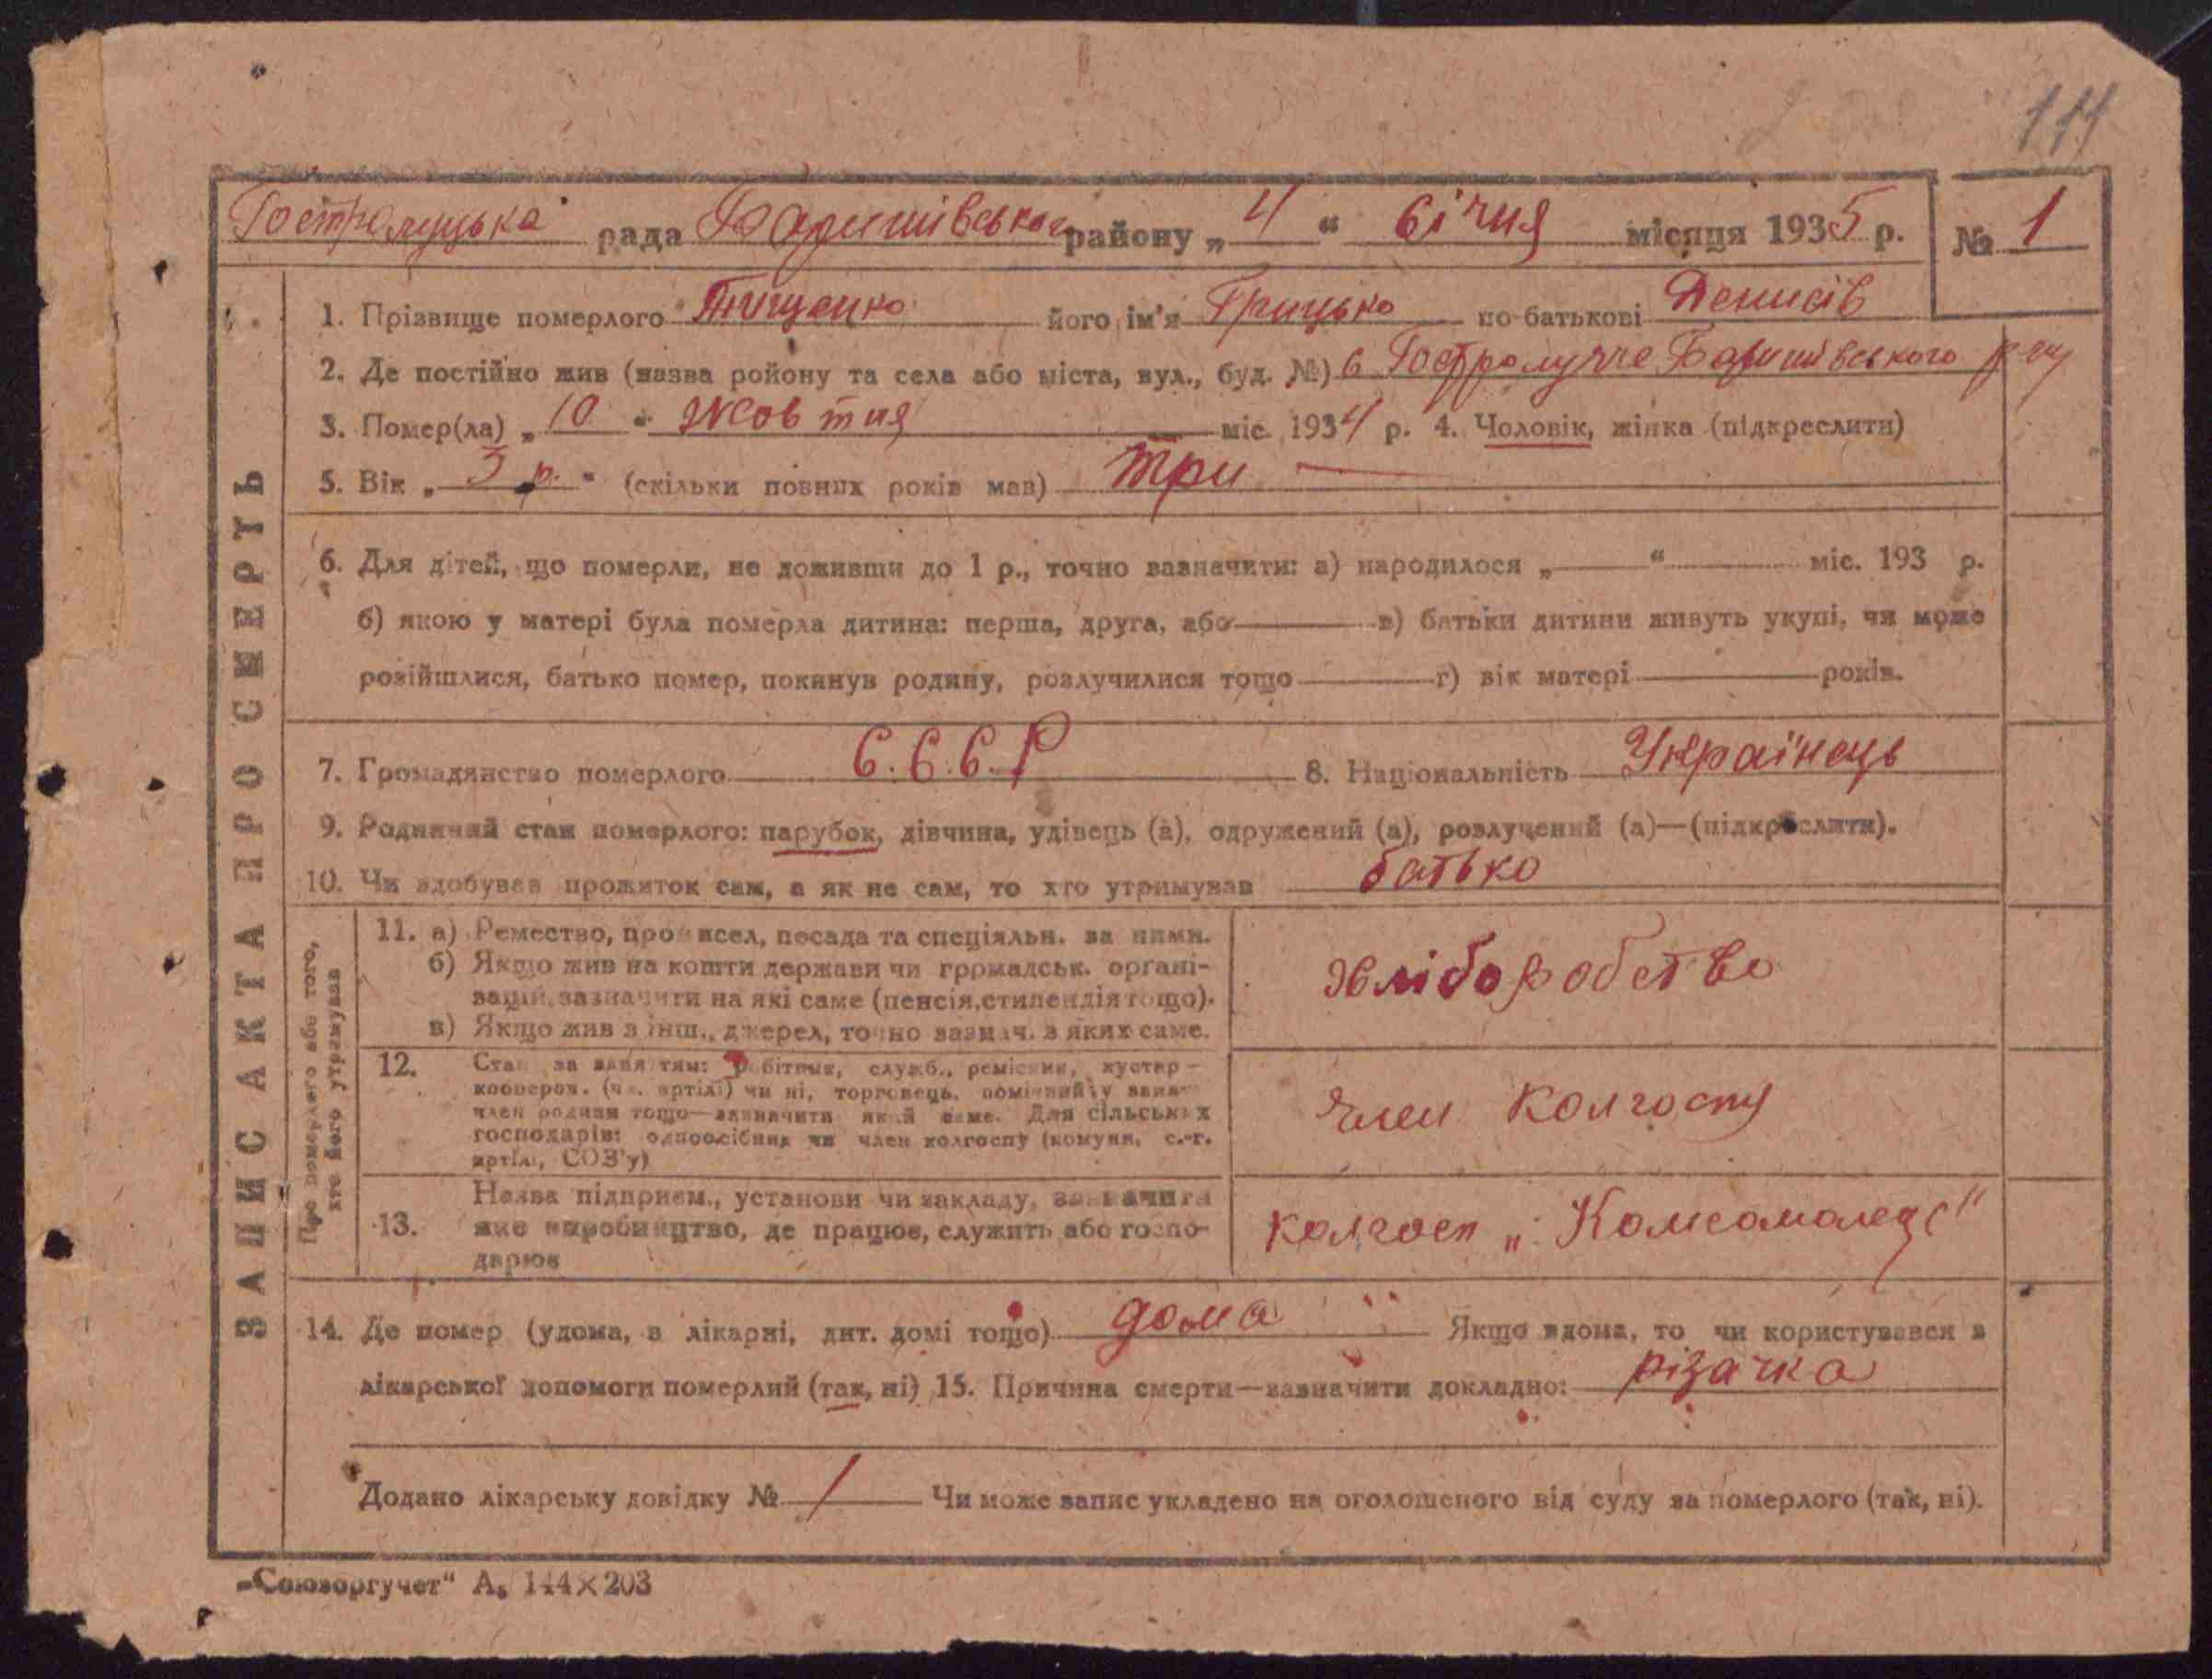 114
Гостролуцька рада Баришівського району „ 4 “ січня місяця 1935 р. № 1
ЗАПИС АКТА ПРО СМЕРТЬ
1. Прізвище померлого Тищенко його ім'я Грицько по батькові Денисів
2. Де постійно жив (назва ройону та села або міста, вул., буд. №) с Гостролучче Баришівського р-ну
3. Помер(ла) „ 10 “ жовтня міс. 1934 р. 4. Чоловік, жінка (підкреслити)
5. Вік „ 3 р. “ (скільки повних років мав) три
6. Для дітей, що померли, не доживши до 1 р., точно зазначити: а) народилося „ “ міс. 193 р.
б) якою у матері була померла дитина: перша, друга, або в) батьки дитини живуть укупі, чи може
розійшлися, батько помер, покинув родину, розлучилися тощо г) вік матері років.
7. Громадянство померлого С.С.С.Р 8. Національність Українець
9. Родинний стан померлого: парубок, дівчина, удівець (а), одружений (а), розлучений (а)—(підкреслити).
10. Чи здобував прожиток сам, а як не сам, то хто утримував батько
Про померлого або того,
хто його утримував
11. а) Ремество, промисел, посада та спеціяльн. за ними.
б) Якщо жив на кошти держави чи громадськ. органі-
зацій, зазначити на які саме (пенсія, стипендія тощо).
в) Якщо жив з інш., джерел, точно зазнач. з яких саме.
хліборобство
12. Стан за заняттям: робітник, служб., ремісник, кустар-
кооперов. (чл. артілі) чи ні, торговець, помічний у занят.
член родини тощо—зазначити який саме. Для сільських
господарів: одноосібник чи член колгоспу (комуни, с.-г.
артілі, СОЗ'у)
член колгоспу
13. Назва підприєм., установи чи закладу, зазначити
яке виробництво, де працює, служить або госпо-
дарює
колгосп „Комсомолець“
14. Де помер (удома, в лікарні, дит. домі тощо) дома Якщо вдома, то чи користувався з
лікарської допомоги померлий (так, ні) 15. Причина смерти—зазначити докладно: різачка
Додано лікарську довідку № / Чи може запис укладено на оголошеного від суду за померлого (так, ні).
„Союзоргучет“ А₅ 144×203